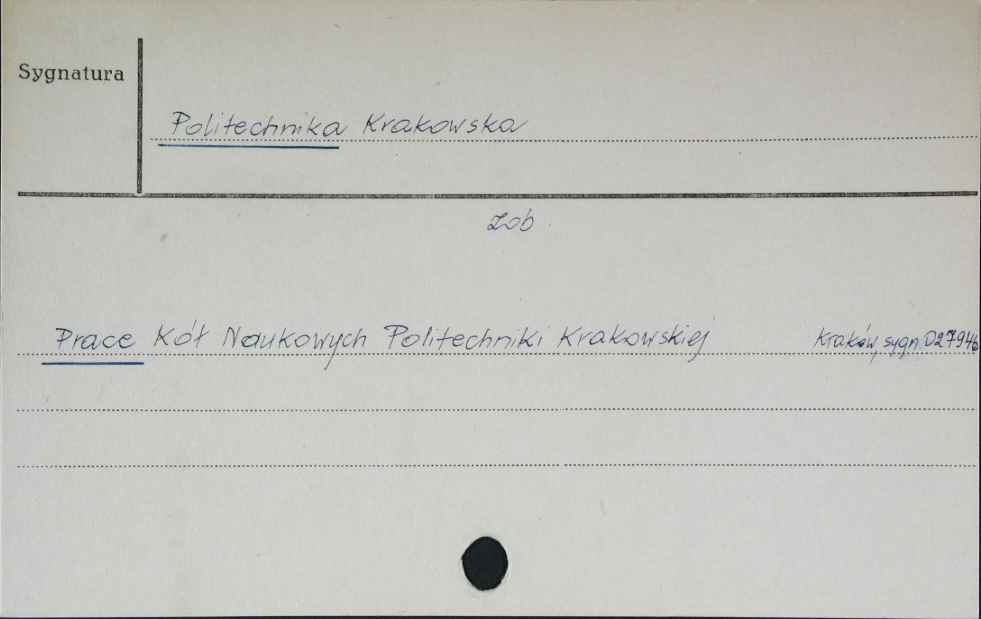 Sygnatura
Politechnika Krakowska
zob.
Prace Kół Naukowych Politechniki Krakowskiej Kraków, sygn. D27946